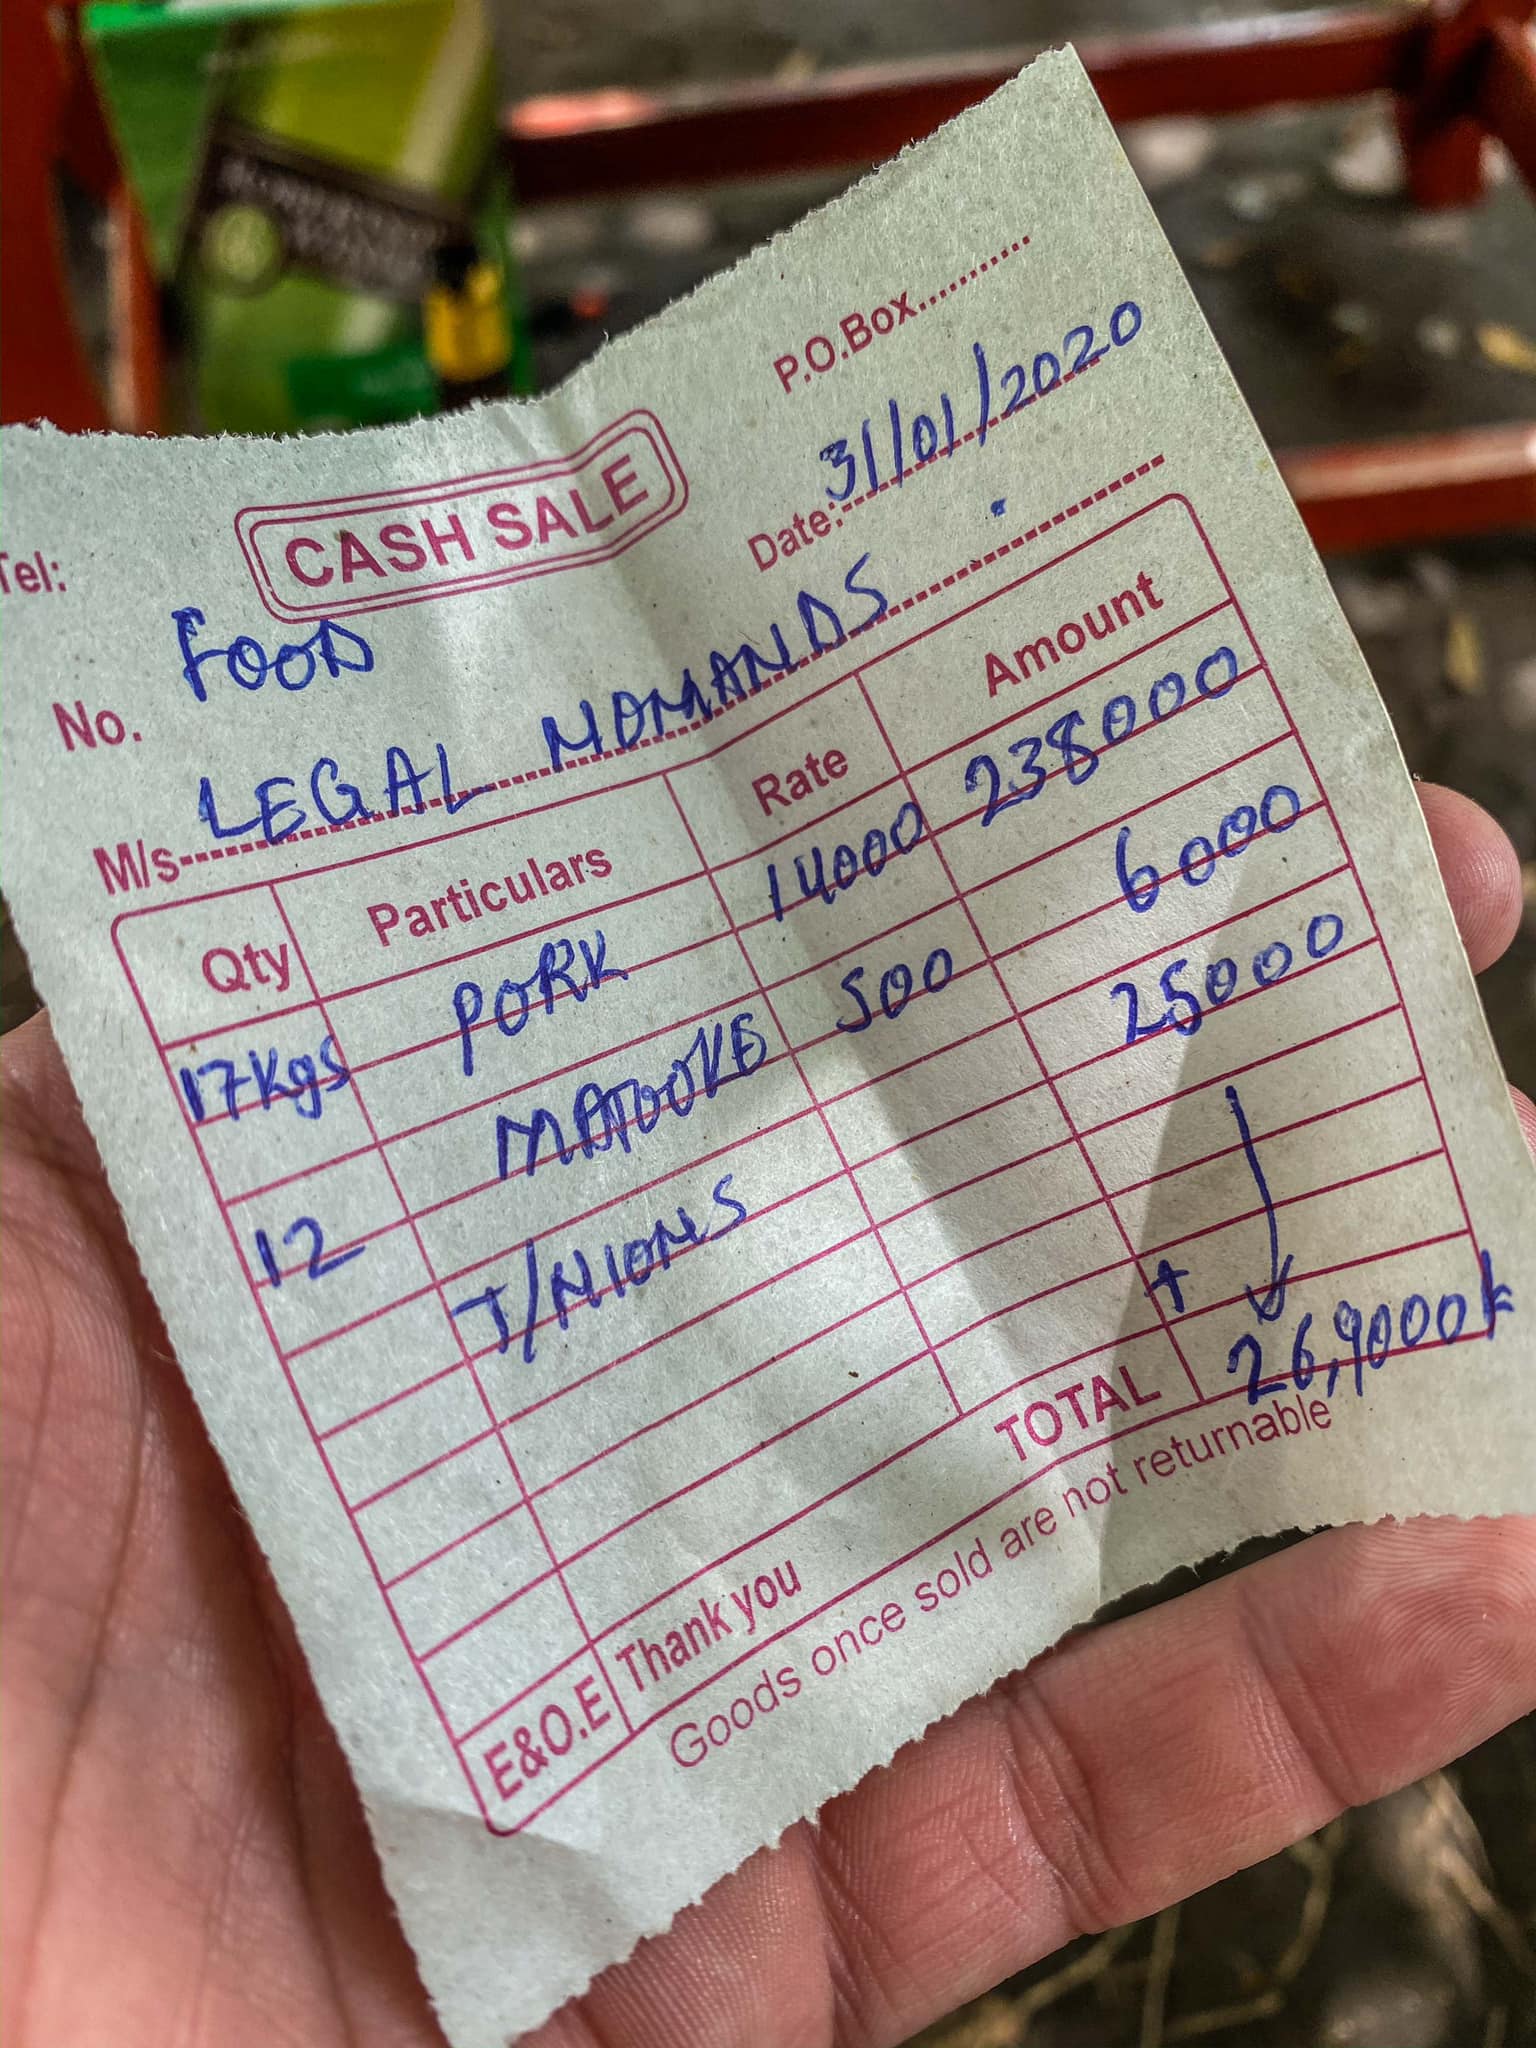 P.O.Box..........
CASH SALE
Tel:
Date: 31/01/2020
No. FOOD
M/s LEGAL NOMANDS
Qty Particulars Rate Amount
17Kgs PORK 14000 238000
12 MATOOKE 500 6000
T/NIONS 25000
+
TOTAL 26,9000k
E&O.E Thank you
Goods once sold are not returnable